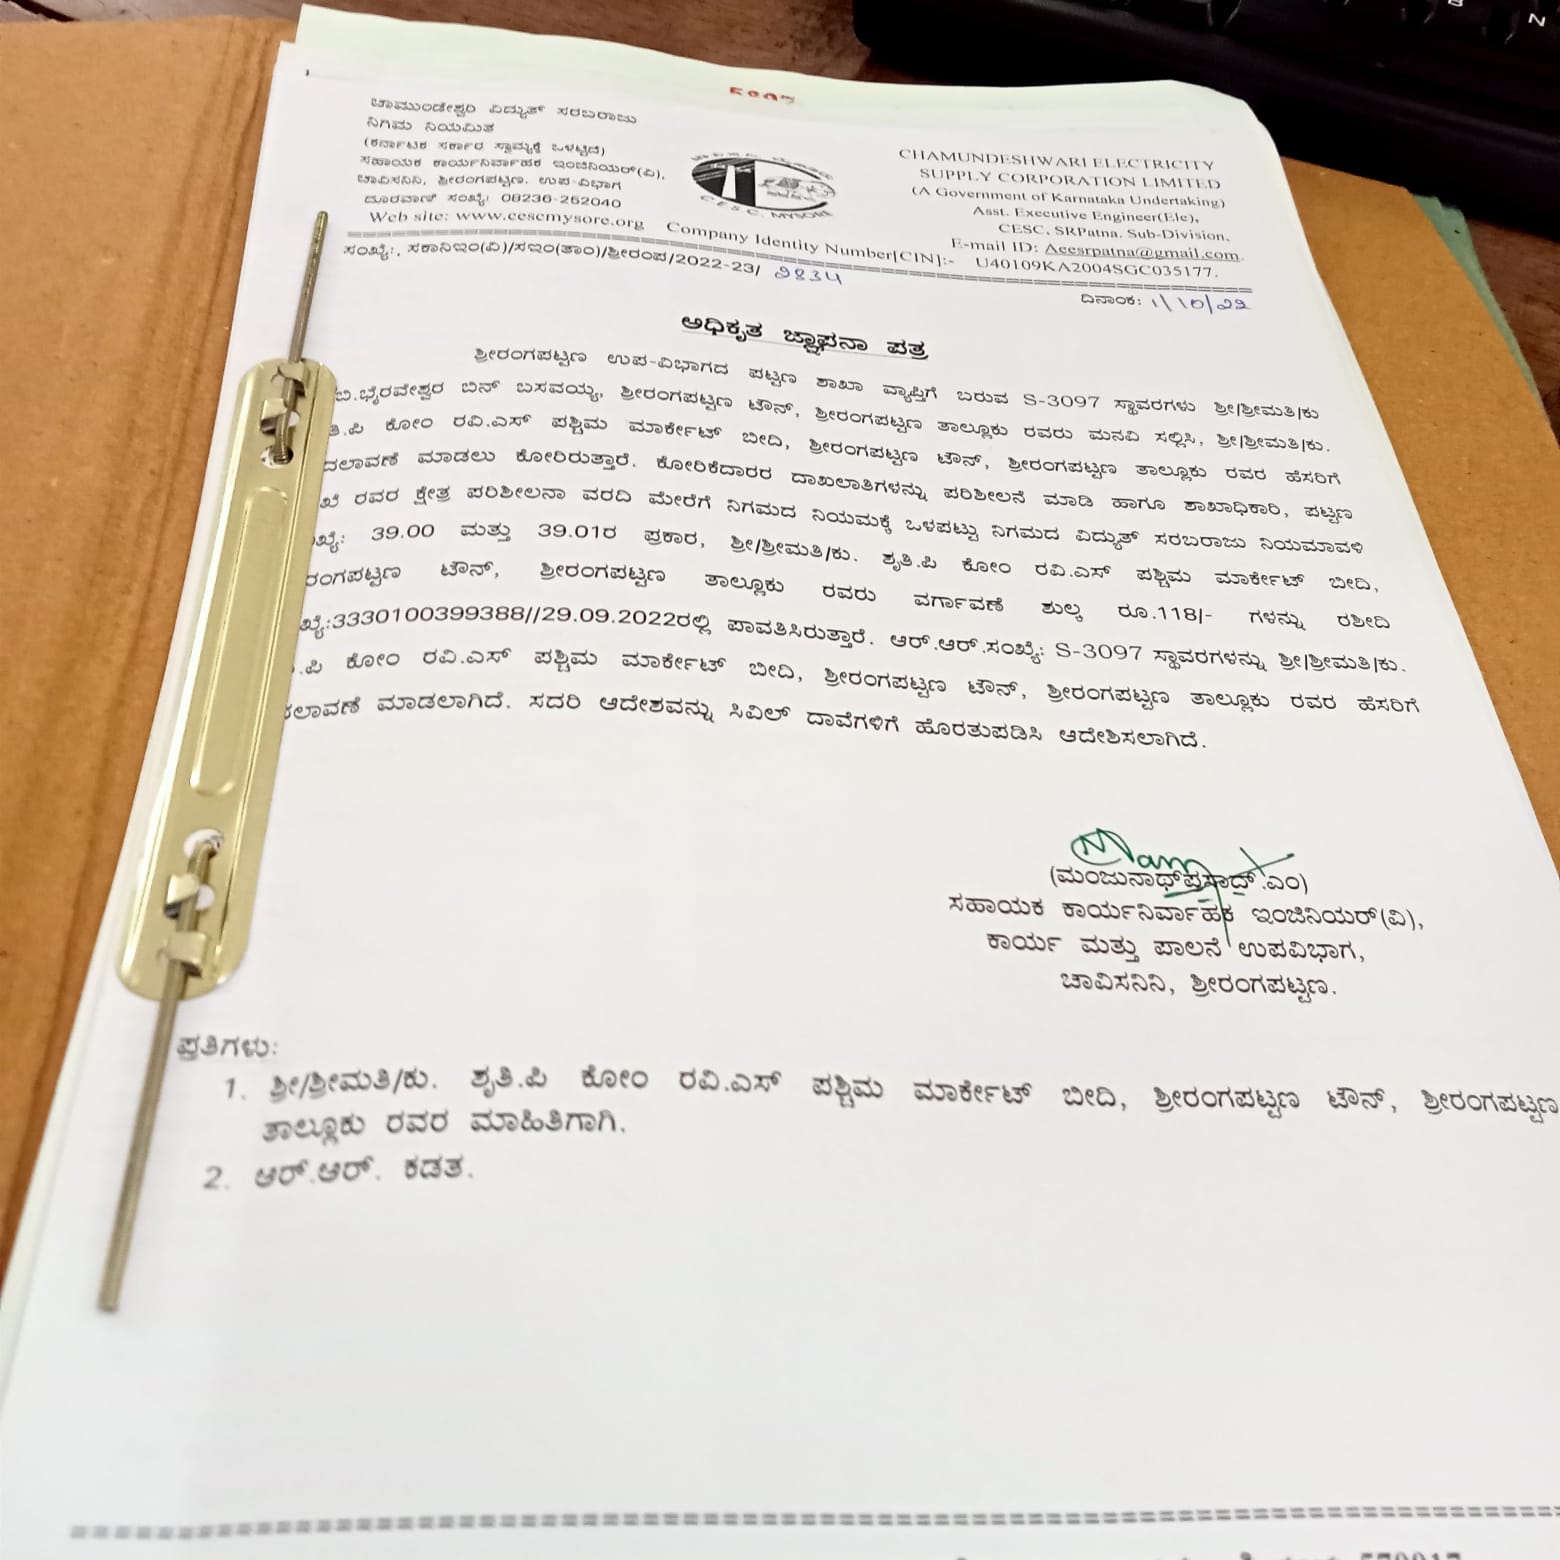 ಚಾಮುಂಡೇಶ್ವರಿ ವಿದ್ಯುತ್ ಸರಬರಾಜು
ನಿಗಮ ನಿಯಮಿತ
(ಕರ್ನಾಟಕ ಸರ್ಕಾರ ಸ್ವಾಮ್ಯಕ್ಕೆ ಒಳಟ್ಟಿದೆ)
ಸಹಾಯಕ ಕಾರ್ಯನಿರ್ವಾಹಕ ಇಂಜಿನಿಯರ್(ವಿ),
ಚಾವಿಸನಿನಿ, ಶ್ರೀರಂಗಪಟ್ಟಣ. ಉಪ-ವಿಭಾಗ
ದೂರವಾಣಿ ಸಂಖ್ಯೆ: 08236-252040
Web site: www.cescmysore.org
C.E.S.C. MYSORE
CHAMUNDESHWARI ELECTRICITY
SUPPLY CORPORATION LIMITED
(A Government of Karnataka Undertaking)
Asst. Executive Engineer(Ele),
CESC, SRPatna. Sub-Division,
E-mail ID: Aeesrpatna@gmail.com.
Company Identity Number[CIN]:- U40109KA2004SGC035177.
ಸಂಖ್ಯೆ:, ಸಕಾನಿಇಂ(ವಿ)/ಸಇಂ(ತಾಂ)/ಶ್ರೀರಂಪ/2022-23/ 2834
ದಿನಾಂಕ: 1/10/22
ಅಧಿಕೃತ ಜ್ಞಾಪನಾ ಪತ್ರ
ಶ್ರೀರಂಗಪಟ್ಟಣ ಉಪ-ವಿಭಾಗದ ಪಟ್ಟಣ ಶಾಖಾ ವ್ಯಾಪ್ತಿಗೆ ಬರುವ S-3097 ಸ್ಥಾವರಗಳು ಶ್ರೀ/ಶ್ರೀಮತಿ/ಕು
ಬಿ.ಭೈರವೇಶ್ವರ ಬಿನ್ ಬಸವಯ್ಯ, ಶ್ರೀರಂಗಪಟ್ಟಣ ಟೌನ್, ಶ್ರೀರಂಗಪಟ್ಟಣ ತಾಲ್ಲೂಕು ರವರು ಮನವಿ ಸಲ್ಲಿಸಿ, ಶ್ರೀ/ಶ್ರೀಮತಿ/ಕು.
ತಿ.ಪಿ ಕೋಂ ರವಿ.ಎಸ್ ಪಶ್ಚಿಮ ಮಾರ್ಕೇಟ್ ಬೀದಿ, ಶ್ರೀರಂಗಪಟ್ಟಣ ಟೌನ್, ಶ್ರೀರಂಗಪಟ್ಟಣ ತಾಲ್ಲೂಕು ರವರ ಹೆಸರಿಗೆ
ದಲಾವಣೆ ಮಾಡಲು ಕೋರಿರುತ್ತಾರೆ. ಕೋರಿಕೆದಾರರ ದಾಖಲಾತಿಗಳನ್ನು ಪರಿಶೀಲನೆ ಮಾಡಿ ಹಾಗೂ ಶಾಖಾಧಿಕಾರಿ, ಪಟ್ಟಣ
ಖೆ ರವರ ಕ್ಷೇತ್ರ ಪರಿಶೀಲನಾ ವರದಿ ಮೇರೆಗೆ ನಿಗಮದ ನಿಯಮಕ್ಕೆ ಒಳಪಟ್ಟು ನಿಗಮದ ವಿದ್ಯುತ್ ಸರಬರಾಜು ನಿಯಮಾವಳಿ
ಖ್ಯೆ: 39.00 ಮತ್ತು 39.01ರ ಪ್ರಕಾರ, ಶ್ರೀ/ಶ್ರೀಮತಿ/ಕು. ಶೃತಿ.ಪಿ ಕೋಂ ರವಿ.ಎಸ್ ಪಶ್ಚಿಮ ಮಾರ್ಕೇಟ್ ಬೀದಿ,
ರಂಗಪಟ್ಟಣ ಟೌನ್, ಶ್ರೀರಂಗಪಟ್ಟಣ ತಾಲ್ಲೂಕು ರವರು ವರ್ಗಾವಣೆ ಶುಲ್ಕ ರೂ.118/- ಗಳನ್ನು ರಶೀದಿ
ಖ್ಯೆ:3330100399388//29.09.2022ರಲ್ಲಿ ಪಾವತಿಸಿರುತ್ತಾರೆ. ಆರ್.ಆರ್.ಸಂಖ್ಯೆ: S-3097 ಸ್ಥಾವರಗಳನ್ನು ಶ್ರೀ/ಶ್ರೀಮತಿ/ಕು.
.ಪಿ ಕೋಂ ರವಿ.ಎಸ್ ಪಶ್ಚಿಮ ಮಾರ್ಕೇಟ್ ಬೀದಿ, ಶ್ರೀರಂಗಪಟ್ಟಣ ಟೌನ್, ಶ್ರೀರಂಗಪಟ್ಟಣ ತಾಲ್ಲೂಕು ರವರ ಹೆಸರಿಗೆ
ಲಾವಣೆ ಮಾಡಲಾಗಿದೆ. ಸದರಿ ಆದೇಶವನ್ನು ಸಿವಿಲ್ ದಾವೆಗಳಿಗೆ ಹೊರತುಪಡಿಸಿ ಆದೇಶಿಸಲಾಗಿದೆ.
(ಮಂಜುನಾಥ್‌ಪ್ರಸಾದ್.ಎಂ)
ಸಹಾಯಕ ಕಾರ್ಯನಿರ್ವಾಹಕ ಇಂಜಿನಿಯರ್(ವಿ),
ಕಾರ್ಯ ಮತ್ತು ಪಾಲನೆ ಉಪವಿಭಾಗ,
ಚಾವಿಸನಿನಿ, ಶ್ರೀರಂಗಪಟ್ಟಣ.
ಪ್ರತಿಗಳು:
1. ಶ್ರೀ/ಶ್ರೀಮತಿ/ಕು. ಶೃತಿ.ಪಿ ಕೋಂ ರವಿ.ಎಸ್ ಪಶ್ಚಿಮ ಮಾರ್ಕೇಟ್ ಬೀದಿ, ಶ್ರೀರಂಗಪಟ್ಟಣ ಟೌನ್, ಶ್ರೀರಂಗಪಟ್ಟಣ
ತಾಲ್ಲೂಕು ರವರ ಮಾಹಿತಿಗಾಗಿ.
2. ಆರ್.ಆರ್. ಕಡತ.